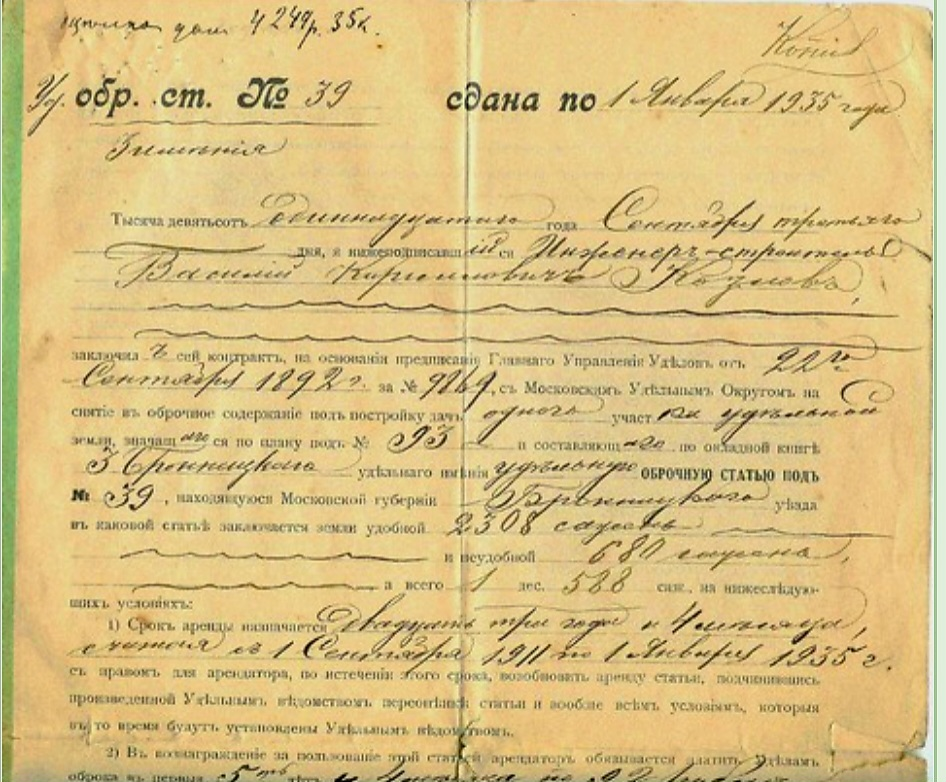 4249р. 35к.
Копія
Уд. обр. ст. № 39 сдана по 1 Января 1935 года
Тысяча девятьсотъ Одиннадцатаго года Сентября третьяго
дня, я нижеподписавшійся Инженеръ-строитель
Василій Кирилловичъ Козловъ,
заключилъ сей контрактъ, на основаніи предписанія Главнаго Управленія Удѣловъ отъ 22го
Сентября 1892 г. за № 9864, съ Московскимъ Удѣльнымъ Округомъ на
снятіе въ оброчное содержаніе подъ постройку дачъ одного участка удѣльной
земли, значащагося по плану подъ № 93 и составляющаго по окладной книгѣ
3 Бронницкаго удѣльнаго имѣнія удѣльную ОБРОЧНУЮ СТАТЬЮ ПОДЪ
№ 39, находящуюся Московской губерніи Бронницкаго уѣзда
въ каковой статьѣ заключается земли удобной 2308 сажень
и неудобной 680 сажень,
а всего 1 дес. 588 саж., на нижеслѣдую-
щихъ условіяхъ:
1) Срокъ аренды назначается двадцать три года и 4 мѣсяца,
считая съ 1 Сентября 1911 по 1 Января 1935 г.
съ правомъ для арендатора, по истеченіи этого срока, возобновить аренду статьи, подчинившись
произведенной Удѣльнымъ вѣдомствомъ переоцѣнкѣ статьи и вообще всѣмъ условіямъ, которыя
въ то время будутъ установлены Удѣльнымъ вѣдомствомъ.
2) Въ вознагражденіе за пользованіе этой статьей арендаторъ обязывается платить Удѣламъ
оброка въ первыя 5ть лѣтъ и 4 мѣсяца по 92